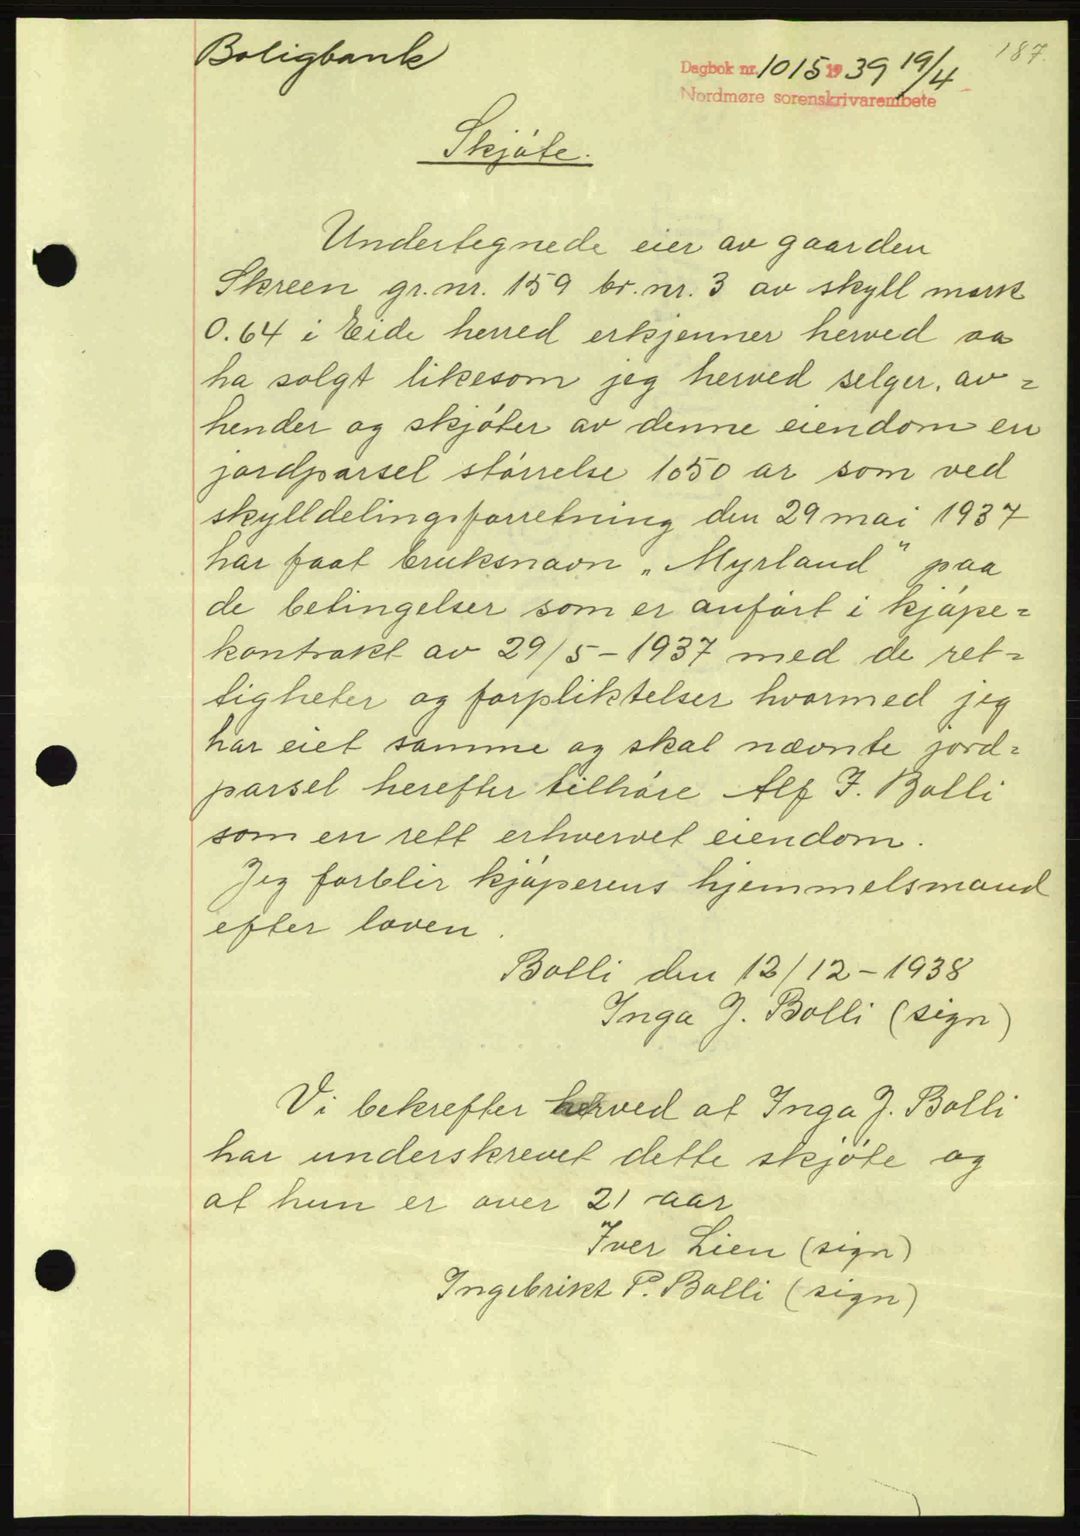 187.
Boligbank
Dagbok nr. 1015 1939 19/4
Nordmøre sorenskrivarembete
Skjøte.
Undertegnede eier av gaarden
Skreen gr.nr. 159 br.nr. 3 av skyll mark
0.64 i Eide herred erkjenner herved aa
ha solgt likesom jeg herved selger, av=
hender og skjøter av denne eiendom en
jordparsel størrelse 1050 ar som ved
skylldelingsforretning den 29 mai 1937
har faat bruksnavn „Myrland" paa
de betingelser som er anført i kjøpe=
kontrakt av 29/5-1937 med de ret=
tigheter og forpliktelser hvormed jeg
har eiet samme og skal nævnte jord=
parsel herefter tilhøre Alf I. Bolli
som en rett erhvervet eiendom.
Jeg forblir kjøperens hjemmelsmand
efter loven.
Bolli den 12/12-1938
Inga J. Bolli (sign)
Vi bekrefter herved at Inga J. Bolli
har underskrevet dette skjøte og
at hun er over 21 aar
Iver Lien (sign)
Ingebrikt P. Bolli (sign)